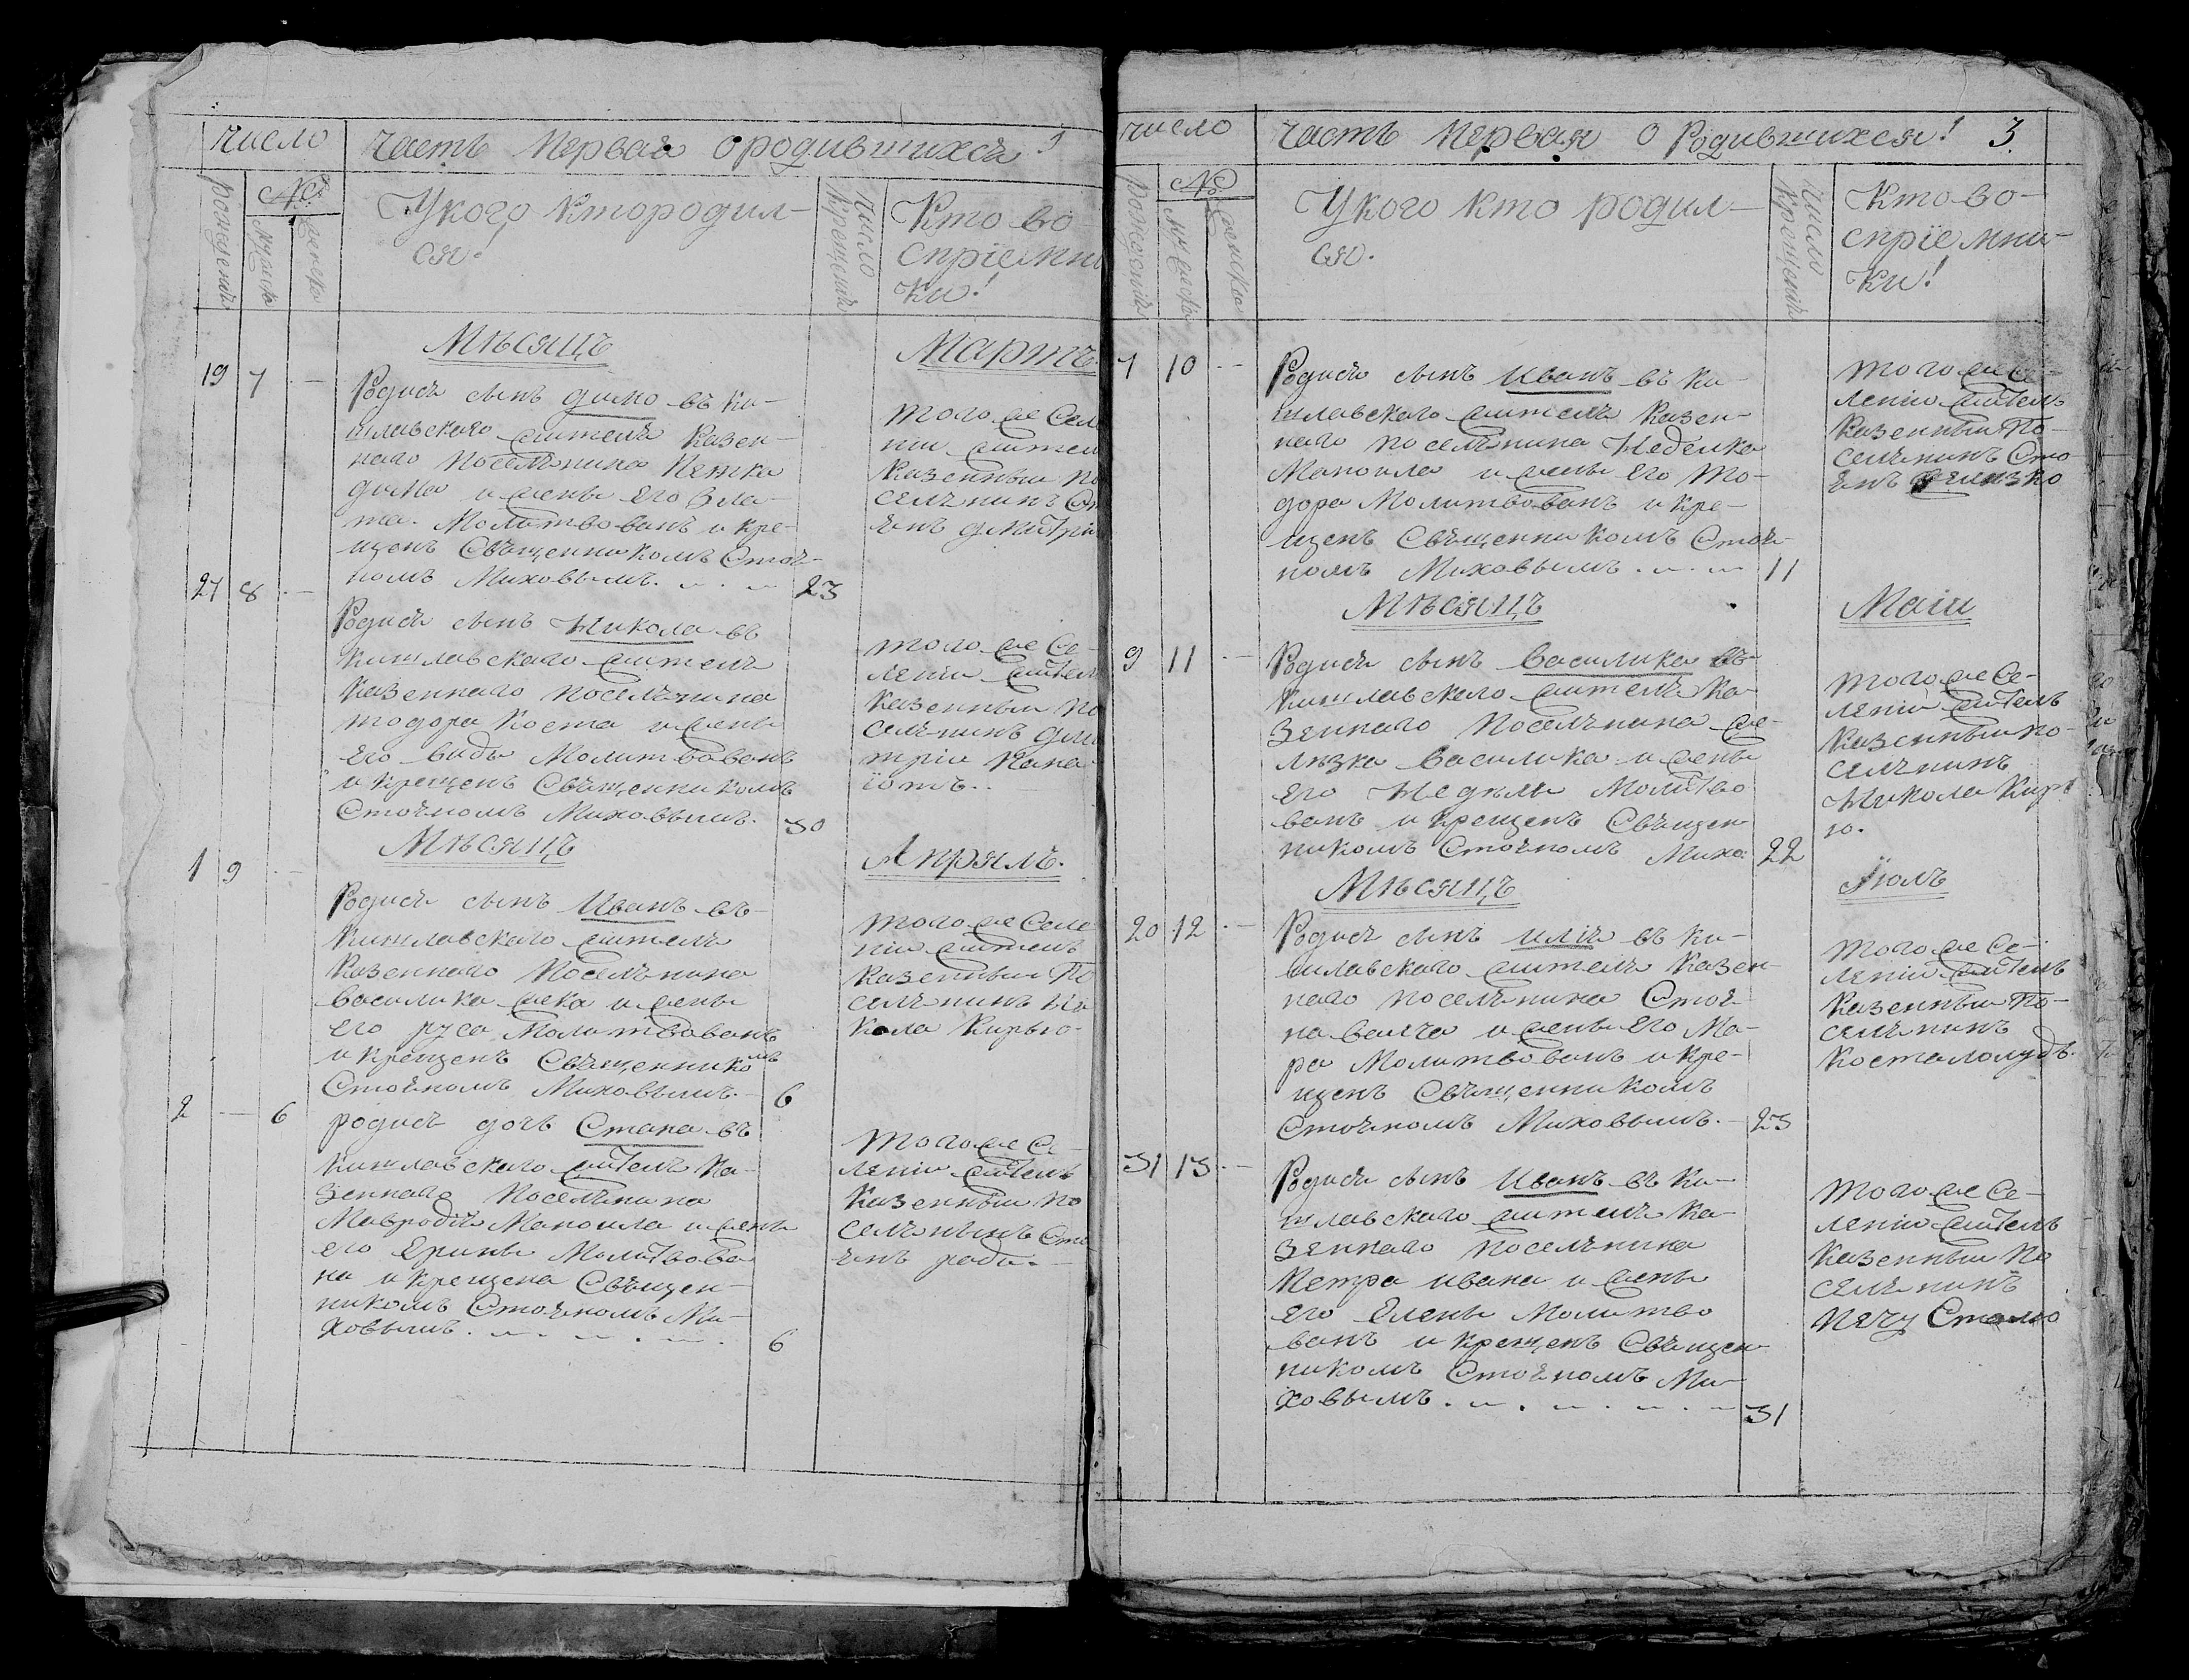 число
часть Первая ородившихся!
рождения
№
мужеска
женска
Укого Кторо́дил-
ся!
число
крещения
Кто во-
сприемни
ки!
Мѣсяцъ
Мартъ
19 7 -
Родися сынъ димо въ Ки-
шлавскаго жителя Казен-
наго Поселянина Петка
дима и жены Его Зла-
та. Молитвованъ и кре-
щенъ Священникомъ Стоя-
номъ Миховымъ. 23
того же Селе
нія жител
Казенныи По
селянинъ Ст
янъ дмитрі
27 8 -
Родися сынъ Никола въ
Кишлавскаго жителя
Казеннаго Поселянина
тодора Коста и жены
Его вида Молитвованъ
и крещенъ Священникомъ
Стояномъ Миховымъ. 30
того же Се-
ленія жител
Казенныи По
селянинъ дми
тріи Пана
іотъ.
Мѣсяцъ
Апрялъ.
1 9 -
Родися сынъ Иванъ въ
Кишлавскаго жителя
Казеннаго Поселянина
василика жека и жены
Его руса Молитвованъ
и крещенъ Священникомъ
Стояномъ Миховымъ. 6
того же Селе
нія житель
Казенныи По
селянинъ Ни
кола Кирью-
2 - 6
родися дочь Стана въ
Кишлавскаго жителя Ка-
зеннаго Поселянина
Мавродія Маноила и жены
его Ерины Молитвова
на и крещена Священ-
никомъ Стояномъ Ми-
ховымъ. 6
того же Се-
ленія житель
Казенныи По
селянынъ Сто
янъ ради.
число
часть Первая о Родившихся! 3
рождения
№
мужеска
женска
Укого кто родил-
ся.
число
крещения
Кто во-
сприемни-
ки!
7 10 -
Родися сынъ Иванъ въ Ки-
шлавскаго жителя Казен-
наго поселянина Неделка
Маноила и жены Его То-
дора Молитвованъ и кре-
щенъ Священникомъ Стоя-
номъ Миховымъ. 11
того же Се-
ленія житель
Казенныи По-
селянинъ Сто
янъ желязко
Мѣсяцъ
Маіи
9 11 -
Родися сынъ василика въ
Кишлавскаго жителя Ка-
зеннаго Поселянина же-
лязка василика и жены
Его Недели Молитво
ванъ и крещенъ Священ
никомъ Стояномъ Михо. 22
того же Се-
ленія житель
Казенныи по-
селянинъ
Никола Кирь
ю.
Мѣсяцъ
Іюлъ
20 12 -
Родися сынъ илія въ Ки-
шлавскаго жителя Казен-
наго поселянина Стоя-
на вылча и жены Его Ма-
ра Молитвованъ и кре-
щенъ Священникомъ
Стояномъ Миховымъ. 23
того же Се-
ленія житель
Казенныи По-
селянинъ
Коста лолудъ.
31 13 -
Родися сынъ Иванъ въ Ки-
шлавскаго жителя Ка-
зеннаго Поселянина
Петра ивана и жены
Его Елены Молитво
ванъ и крещенъ Священ
никомъ Стояномъ Ми-
ховымъ. 31
того же Се-
ленія житель
Казенныи По
селянинъ
Пячу Стамо